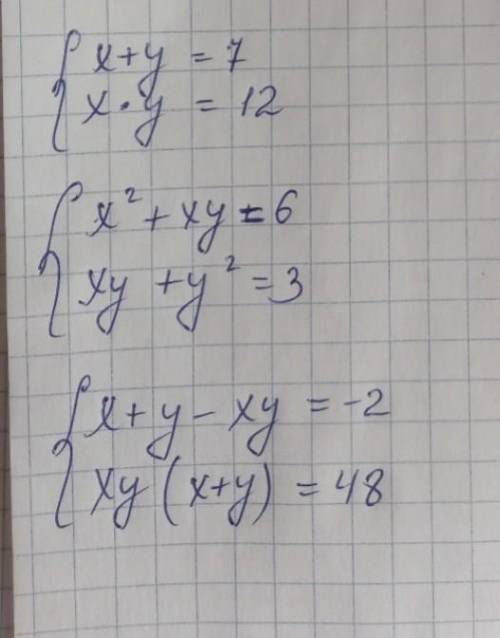 x+y = 7
x·y = 12
x² + xy = 6
xy + y² = 3
x + y - xy = -2
xy (x+y) = 48